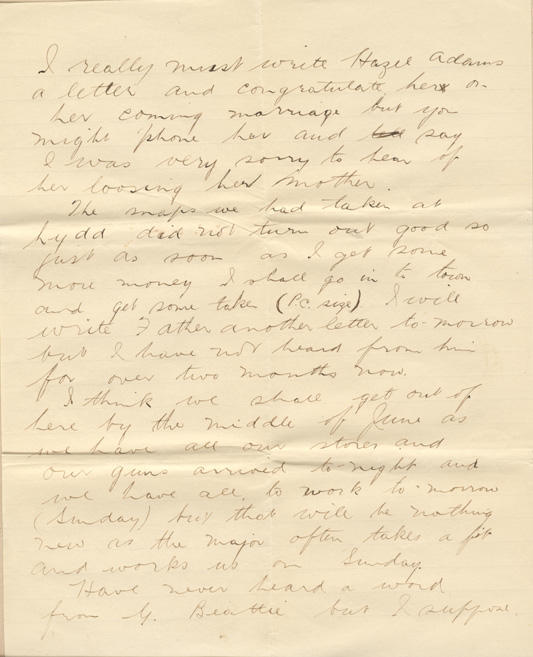 I really must write Hazel Adams
a letter and congratulate her on
her coming marriage but you
might phone her and say
I was very sorry to hear of
her loosing her Mother.
The snaps we had taken at
Lydd did not turn out good so
just as soon as I get some
more money I shall go in to town
and get some taken (P.C. size) I will
write Father another letter to-morrow
but I have not heard from him
for over two months now.
I think we shall get out of
here by the middle of June as
we have all our stores and
our guns arrived to-night and
we have all, to work to-morrow
(Sunday) but that will be nothing
new as the major often takes a fit
and works us on Sunday.
Have never heard a word
from G. Beattie but I suppose